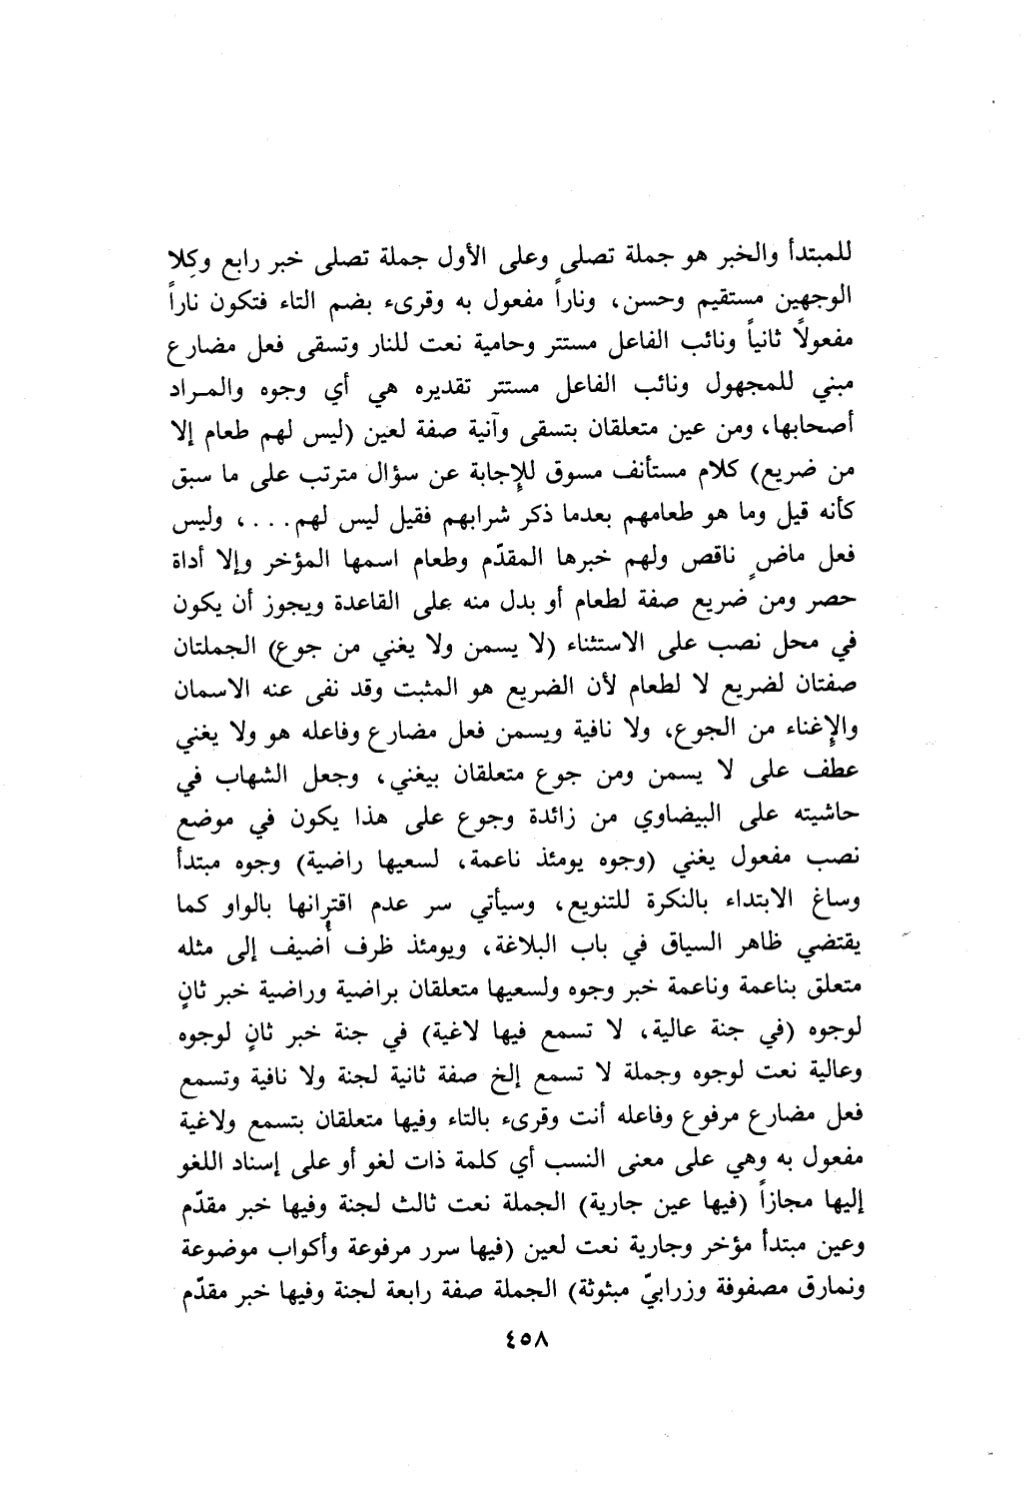 للمبتدأ والخبر هو جملة تصلى وعلى الأول جملة تصلى خبر رابع وكِلا
الوجهين مستقيم وحسن، وناراً مفعول به وقرىء بضم التاء فتكون ناراً
مفعولاً ثانياً ونائب الفاعل مستتر وحامية نعت للنار وتسقى فعل مضارع
مبني للمجهول ونائب الفاعل مستتر تقديره هي أي وجوه والمـراد
أصحابها، ومن عين متعلقان بتسقى وآنية صفة لعين (ليس لهم طعام إلا
من ضريع) كلام مستأنف مسوق للإجابة عن سؤال مترتب على ما سبق
كأنه قيل وما هو طعامهم بعدما ذكر شرابهم فقيل ليس لهم...، وليس
فعل ماضٍ ناقص ولهم خبرها المقدّم وطعام اسمها المؤخر وإلا أداة
حصر ومن ضريع صفة لطعام أو بدل منه على القاعدة ويجوز أن يكون
في محل نصب على الاستثناء (لا يسمن ولا يغني من جوع) الجملتان
صفتان لضريع لا لطعام لأن الضريع هو المثبت وقد نفى عنه الاسمان
والإغناء من الجوع، ولا نافية ويسمن فعل مضارع وفاعله هو ولا يغني
عطف على لا يسمن ومن جوع متعلقان بيغني، وجعل الشهاب في
حاشيته على البيضاوي من زائدة وجوع على هذا يكون في موضع
نصب مفعول يغني (وجوه يومئذ ناعمة، لسعيها راضية) وجوه مبتدأ
وساغ الابتداء بالنكرة للتنويع، وسيأتي سر عدم اقترانها بالواو كما
يقتضي ظاهر السياق في باب البلاغة، ويومئذ ظرف أُضيف إلى مثله
متعلق بناعمة وناعمة خبر وجوه ولسعيها متعلقان براضية وراضية خبر ثانٍ
لوجوه (في جنة عالية، لا تسمع فيها لاغية) في جنة خبر ثانٍ لوجوه
وعالية نعت لوجوه وجملة لا تسمع إلخ صفة ثانية لجنة ولا نافية وتسمع
فعل مضارع مرفوع وفاعله أنت وقرىء بالتاء وفيها متعلقان بتسمع ولاغية
مفعول به وهي على معنى النسب أي كلمة ذات لغو أو على إسناد اللغو
إليها مجازاً (فيها عين جارية) الجملة نعت ثالث لجنة وفيها خبر مقدّم
وعين مبتدأ مؤخر وجارية نعت لعين (فيها سرر مرفوعة وأكواب موضوعة
ونمارق مصفوفة وزرابيّ مبثوثة) الجملة صفة رابعة لجنة وفيها خبر مقدّم
٤٥٨